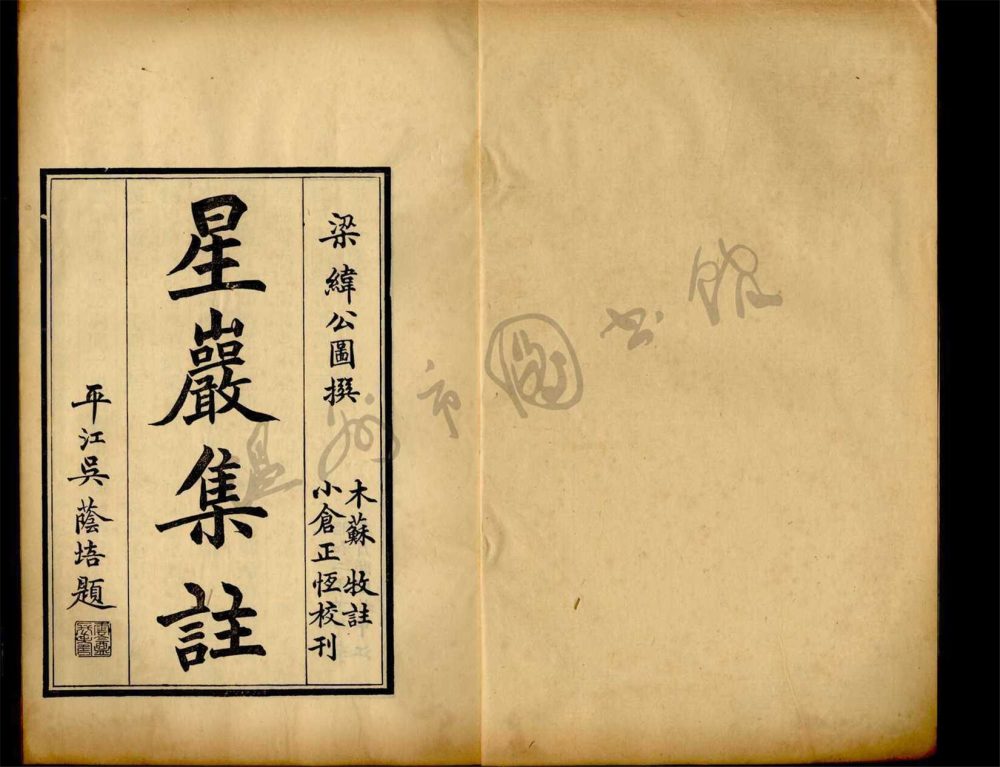 梁緯公圖撰
木蘇牧註
小倉正恆校刊
星巖集註
平江吳蔭培題
温州市图书馆